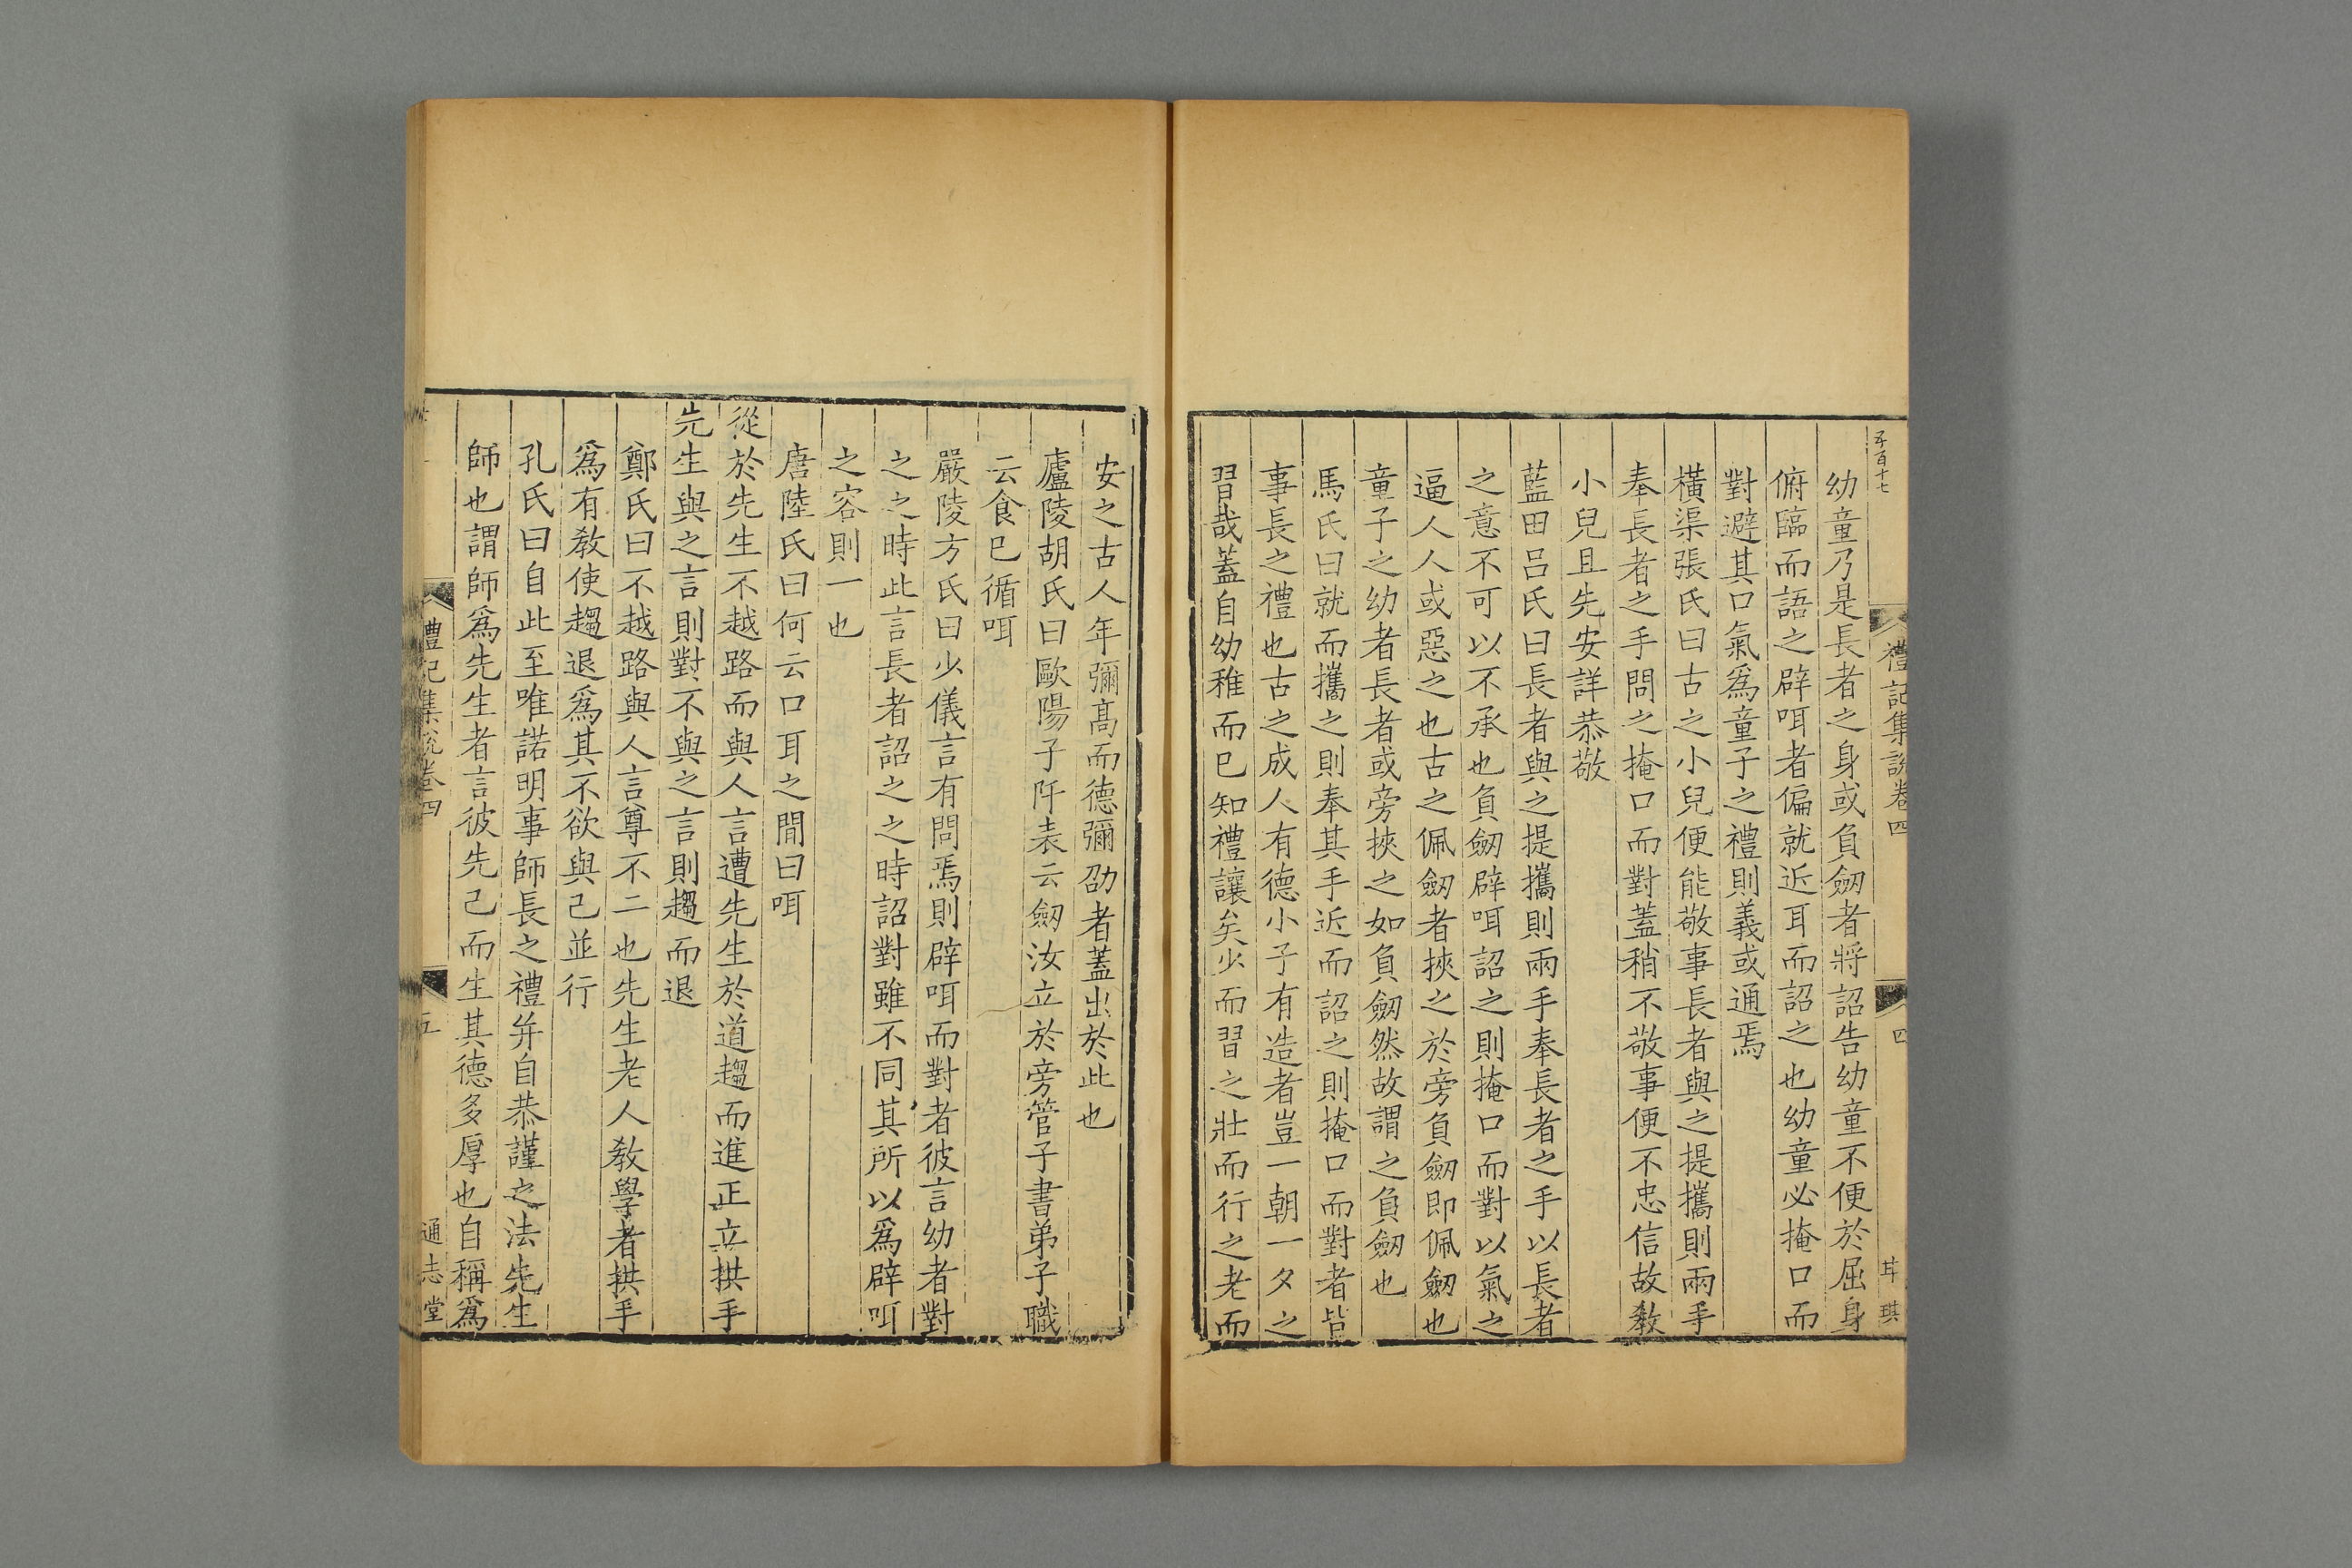 五百十七
禮記集說卷四
四
幼童乃是長者之身或負劒者將詔告幼童不便於屈身
俯臨而語之辟咡者偏就近耳而詔之也幼童必掩口而
對避其口氣爲童子之禮則義或通焉
橫渠張氏曰古之小兒便能敬事長者與之提攜則兩手
奉長者之手問之掩口而對蓋稍不敬事便不忠信故敎
小兒且先安詳恭敬
藍田吕氏曰長者與之提攜則兩手奉長者之手以長者
之意不可以不承也負劒辟咡詔之則掩口而對以氣之
逼人人或惡之也古之佩劒者挾之於旁負劒即佩劒也
童子之幼者長者或旁挾之如負劒然故謂之負劒也
馬氏曰就而攜之則奉其手近而詔之則掩口而對者皆
事長之禮也古之成人有德小子有造者豈一朝一夕之
習哉蓋自幼稚而巳知禮讓矣少而習之壯而行之老而
安之古人年彌高而德彌劭者蓋出於此也
廬陵胡氏曰歐陽子阡表云劒汝立於旁管子書弟子職
云食巳循咡
嚴陵方氏曰少儀言有問焉則辟咡而對者彼言幼者對
之之時此言長者詔之之時詔對雖不同其所以爲辟咡
之容則一也
唐陸氏曰何云口耳之間曰咡
從於先生不越路而與人言遭先生於道趨而進正立拱手
先生與之言則對不與之言則趨而退
鄭氏曰不越路與人言尊不二也先生老人敎學者拱手
爲有敎使趨退爲其不欲與己並行
孔氏曰自此至唯諾明事師長之禮并自恭謹之法先生
師也謂師爲先生者言彼先己而生其德多厚也自稱爲
禮記集說卷四
五
通志堂